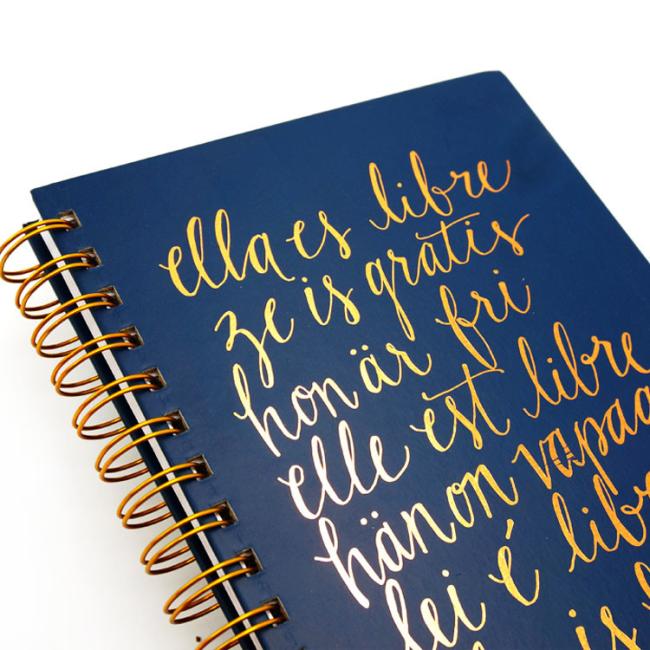 ella es libre
ze is gratis
hon är fri
elle est libre
hän on vapaa
lei é libe
is